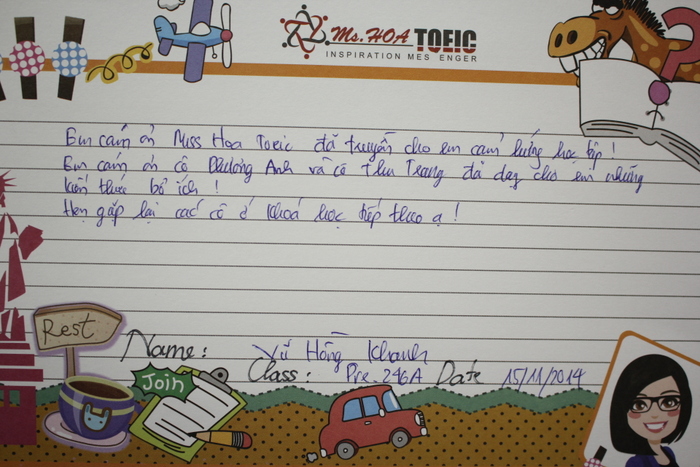 Ms. HOA TOEIC
INSPIRATION MESSENGER
Em cám ơn Miss Hoa Toeic đã truyền cho em cảm hứng học tập !
Em cám ơn cô Phương Anh và cô Thu Trang đã dạy cho em những
kiến thức bổ ích !
Hẹn gặp lại các cô ở khoá học tiếp theo ạ !
Rest
Name: Vũ Hồng Khanh
Class: Pre 246A Date 15/11/2014
Join